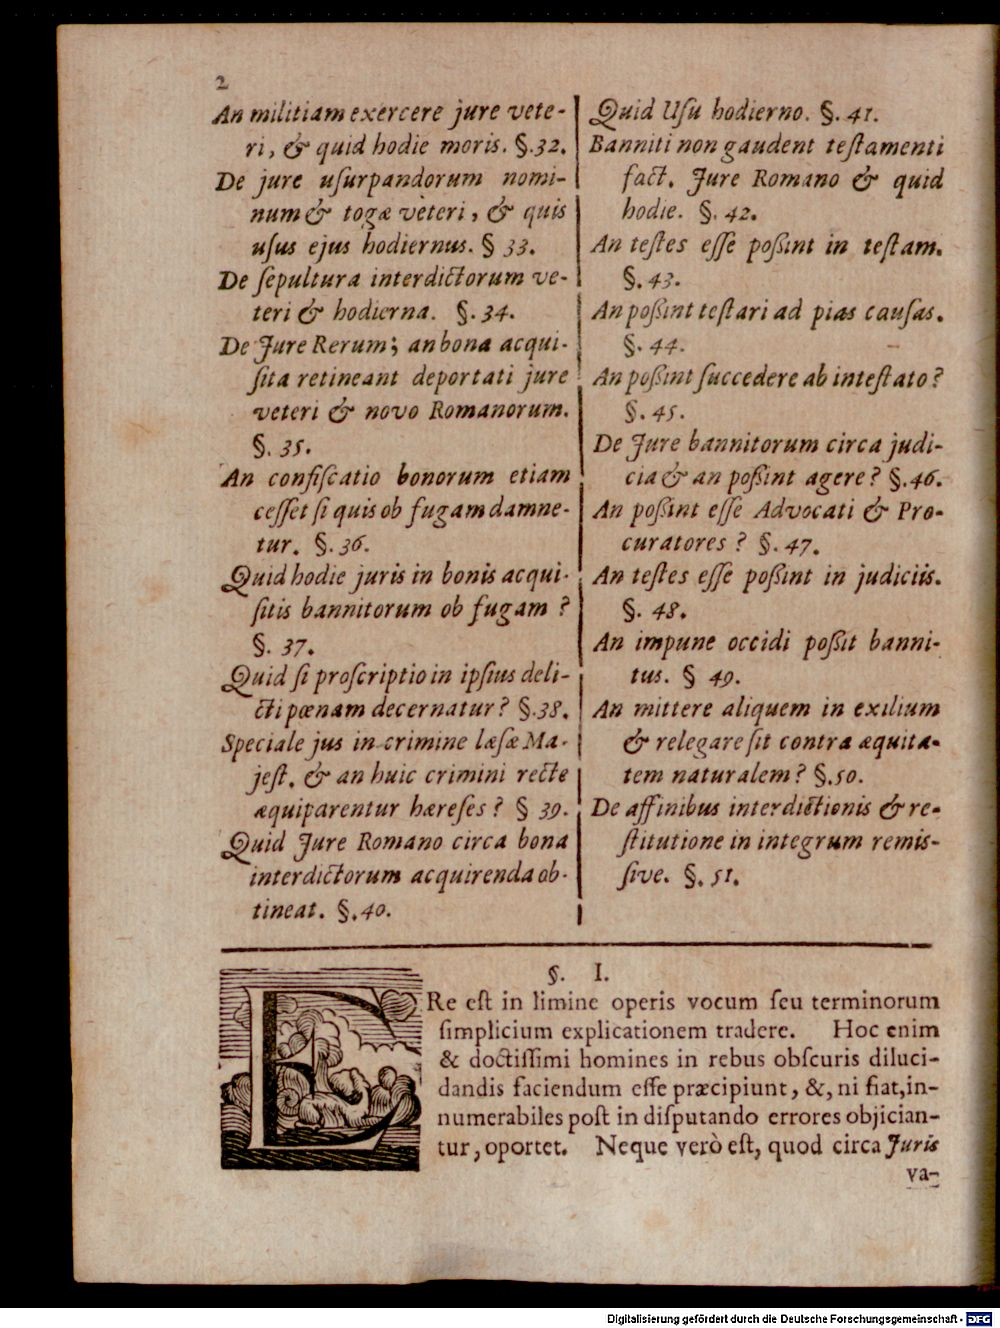 2
An militiam exercere jure vete-
ri, & quid hodie moris. §. 32.
De jure uſurpandorum nomi-
num & togæ veteri, & quis
uſus ejus hodiernus. § 33.
De ſepultura interdictorum ve-
teri & hodierna. §. 34.
De Jure Rerum; an bona acqui-
ſita retineant deportati jure
veteri & novo Romanorum.
§. 35.
An confiſcatio bonorum etiam
ceſſet ſi quis ob fugam damne-
tur. §. 36.
Quid hodie juris in bonis acqui-
ſitis bannitorum ob fugam?
§. 37.
Quid ſi proſcriptio in ipſius deli-
cti pœnam decernatur? §. 38.
Speciale jus in crimine læſæ Ma-
jeſt. & an huic crimini recte
æquiparentur hæreſes? § 39.
Quid Jure Romano circa bona
interdictorum acquirenda ob-
tineat. §. 40.
Quid Uſu hodierno. §. 41.
Banniti non gaudent teſtamenti
fact. Jure Romano & quid
hodie. §. 42.
An teſtes eſſe poßint in teſtam.
§. 43.
An poßint teſtari ad pias cauſas.
§. 44.
An poßint ſuccedere ab inteſtato?
§. 45.
De Jure bannitorum circa judi-
cia & an poßint agere? §. 46.
An poßint eſſe Advocati & Pro-
curatores? §. 47.
An teſtes eſſe poßint in judiciis.
§. 48.
An impune occidi poßit banni-
tus. § 49.
An mittere aliquem in exilium
& relegare ſit contra æquita-
tem naturalem? §. 50.
De affinibus interdictionis & re-
ſtitutione in integrum remiſ-
ſive. §. 51.
§. I.
ERe eſt in limine operis vocum ſeu terminorum
ſimplicium explicationem tradere. Hoc enim
& doctiſſimi homines in rebus obſcuris diluci-
dandis faciendum eſſe præcipiunt, &, ni fiat, in-
numerabiles poſt in diſputando errores objician-
tur, oportet. Neque verò eſt, quod circa Juris
va-
Digitalisierung gefördert durch die Deutsche Forschungsgemeinschaft - DFG